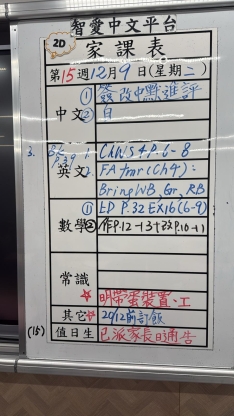 智愛中文平台
2D
家課表
第15週12月9日(星期二)
中文
① 簽改中默進評
② 自
英文
3.
1. Ch WS 4 P.6-8
2. FA tmr (Ch4):
Bring WB, Gr, RB
數學
① EP P.32 EX16(6-9)
② 作P.12-13+改P.10-11
常識
☆明帶蛋裝置、工
其它
☆20/12前訂飯
(15)
值日生
已派家長日通告